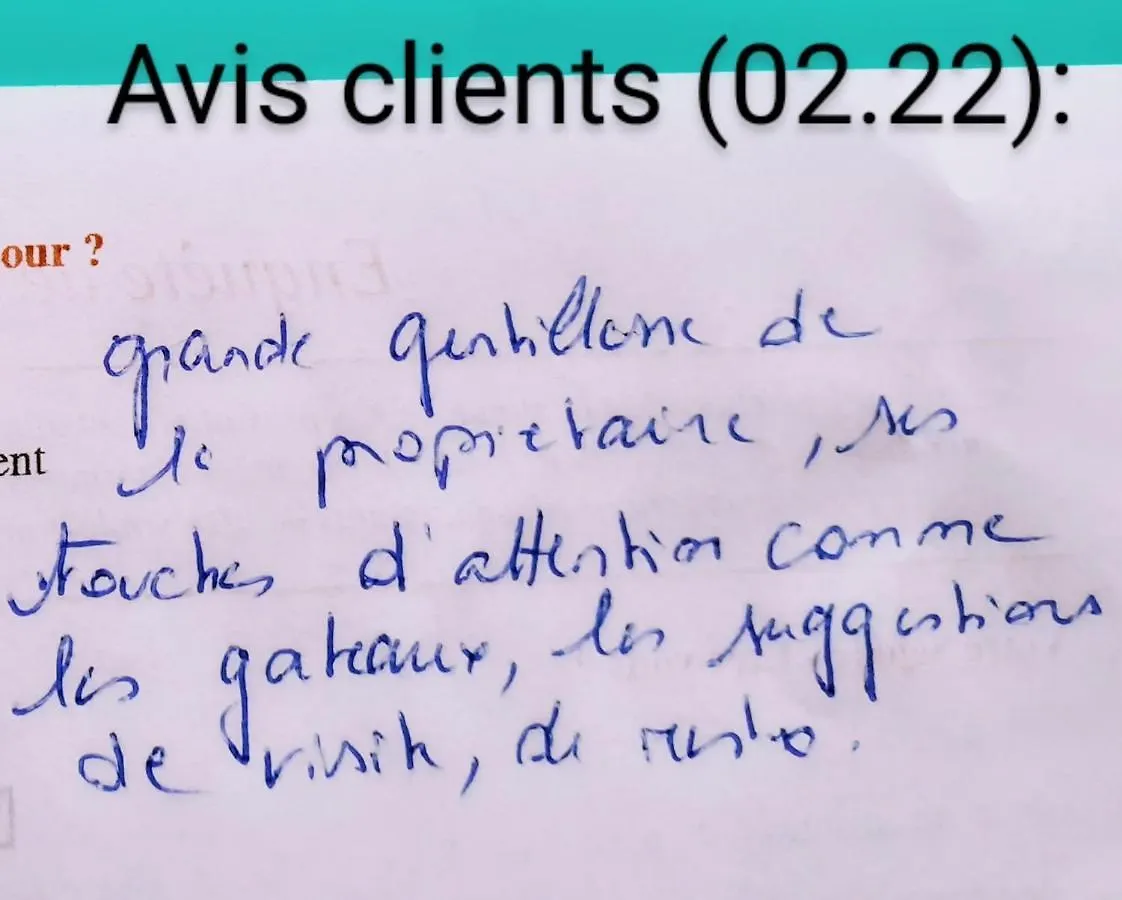 Avis clients (02.22):
our ?
grande gentillesse de
la propriétaire, ses
ent
touches d'attention comme
les gateaux, les suggestions
de visite, de resto.